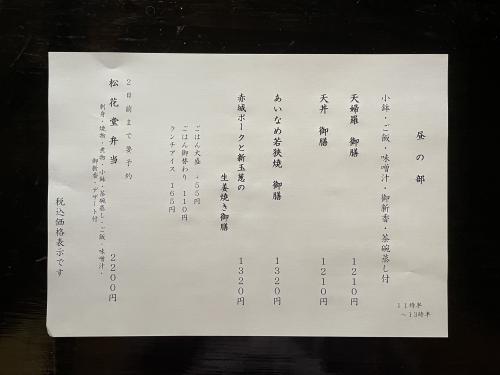 昼の部
11時半
～13時半
小鉢・ご飯・味噌汁・御新香・茶碗蒸し付
天婦羅 御膳 1210円
天丼 御膳 1210円
あいなめ若狭焼 御膳 1320円
赤城ポークと新玉葱の
生姜焼き御膳 1320円
ごはん大盛 +55円
ごはん御替わり 110円
ランチアイス 165円
2日前まで要予約
松花堂弁当 2200円
刺身・焼物・煮物・小鉢・茶碗蒸し・ご飯・味噌汁・
御新香・デザート付
税込価格表示です